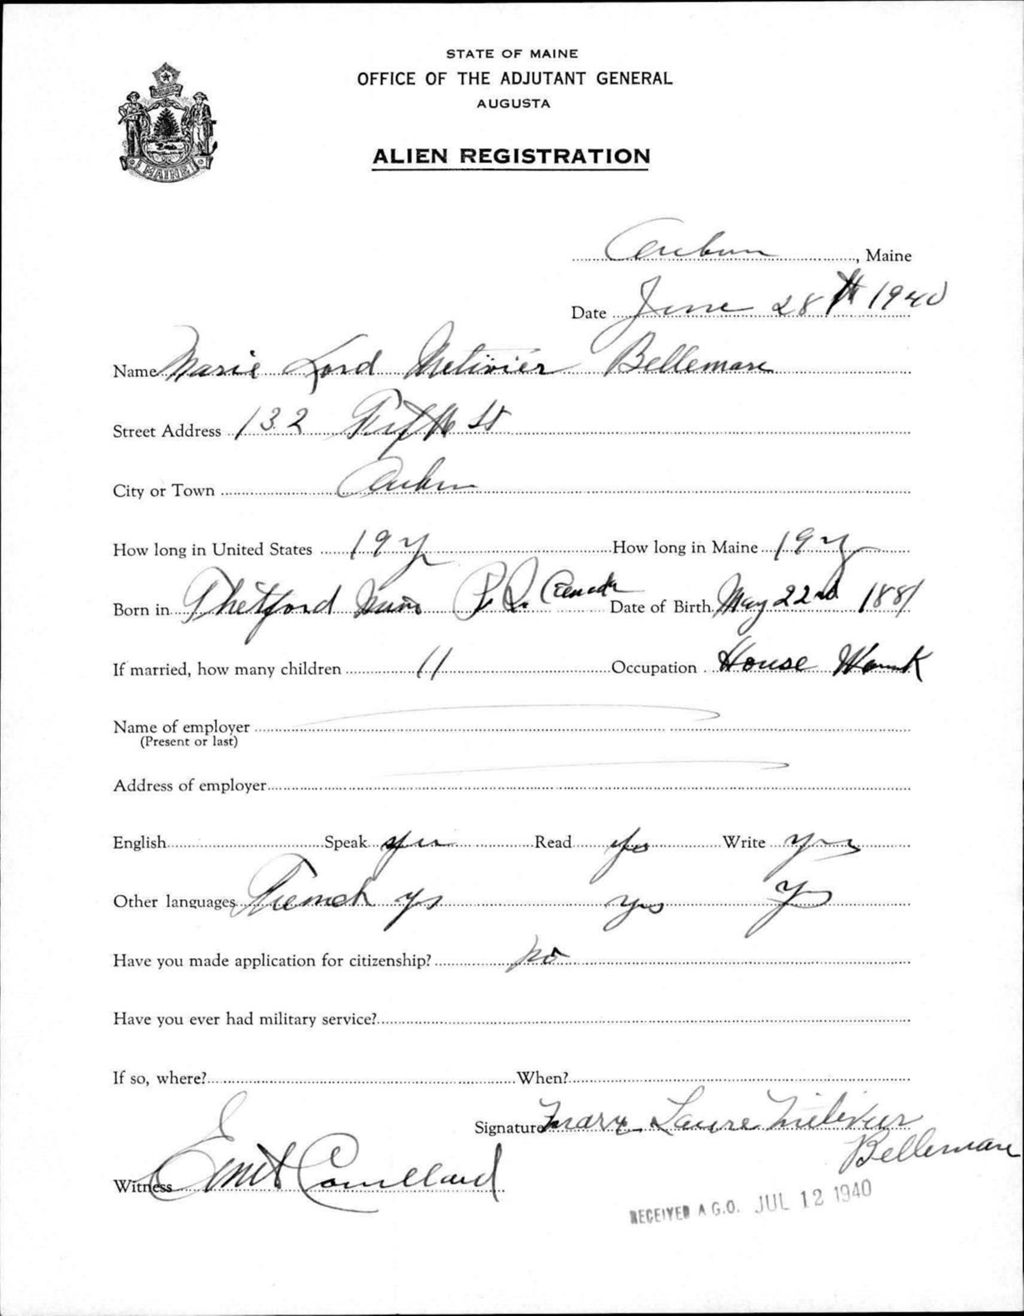 STATE OF MAINE
OFFICE OF THE ADJUTANT GENERAL
AUGUSTA
ALIEN REGISTRATION
MAINE
Auburn, Maine
Date June 28th 1940
Name Marie Lord Metivier Bellemare
Street Address 132 Fifth St
City or Town Auburn
How long in United States 19 y How long in Maine 19 y
Born in Thetford Mines P.Q. Canada Date of Birth May 22nd 1881
If married, how many children 11 Occupation House Work
Name of employer
(Present or last)
Address of employer
English Speak yes Read yes Write yes
Other languages French ys yes y
Have you made application for citizenship? no
Have you ever had military service?
If so, where? When?
Signature Mary Laure Metivier
Bellemare
Witness
RECEIVED A.G.O. JUL 12 1940